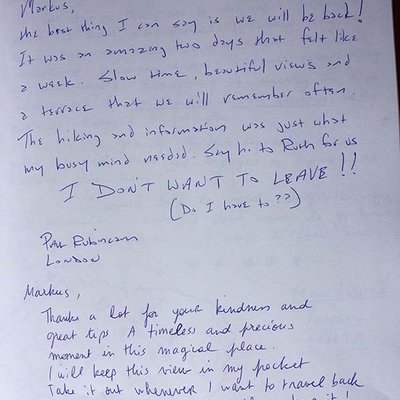 Markus,
the best thing I can say is we will be back!
It was an amazing two days that felt like
a week. Slow time, beautiful views and
a terrace that we will remember often.
The hiking and information was just what
my busy mind needed. Say hi to Ruth for us
I DON'T WANT TO LEAVE!!
(Do I have to??)
LONDON
Markus,
Thanks a lot for your kindness and
great tips. A timeless and precious
moment in this magical place.
I will keep this view in my pocket
Take it out whenever I want to travel back